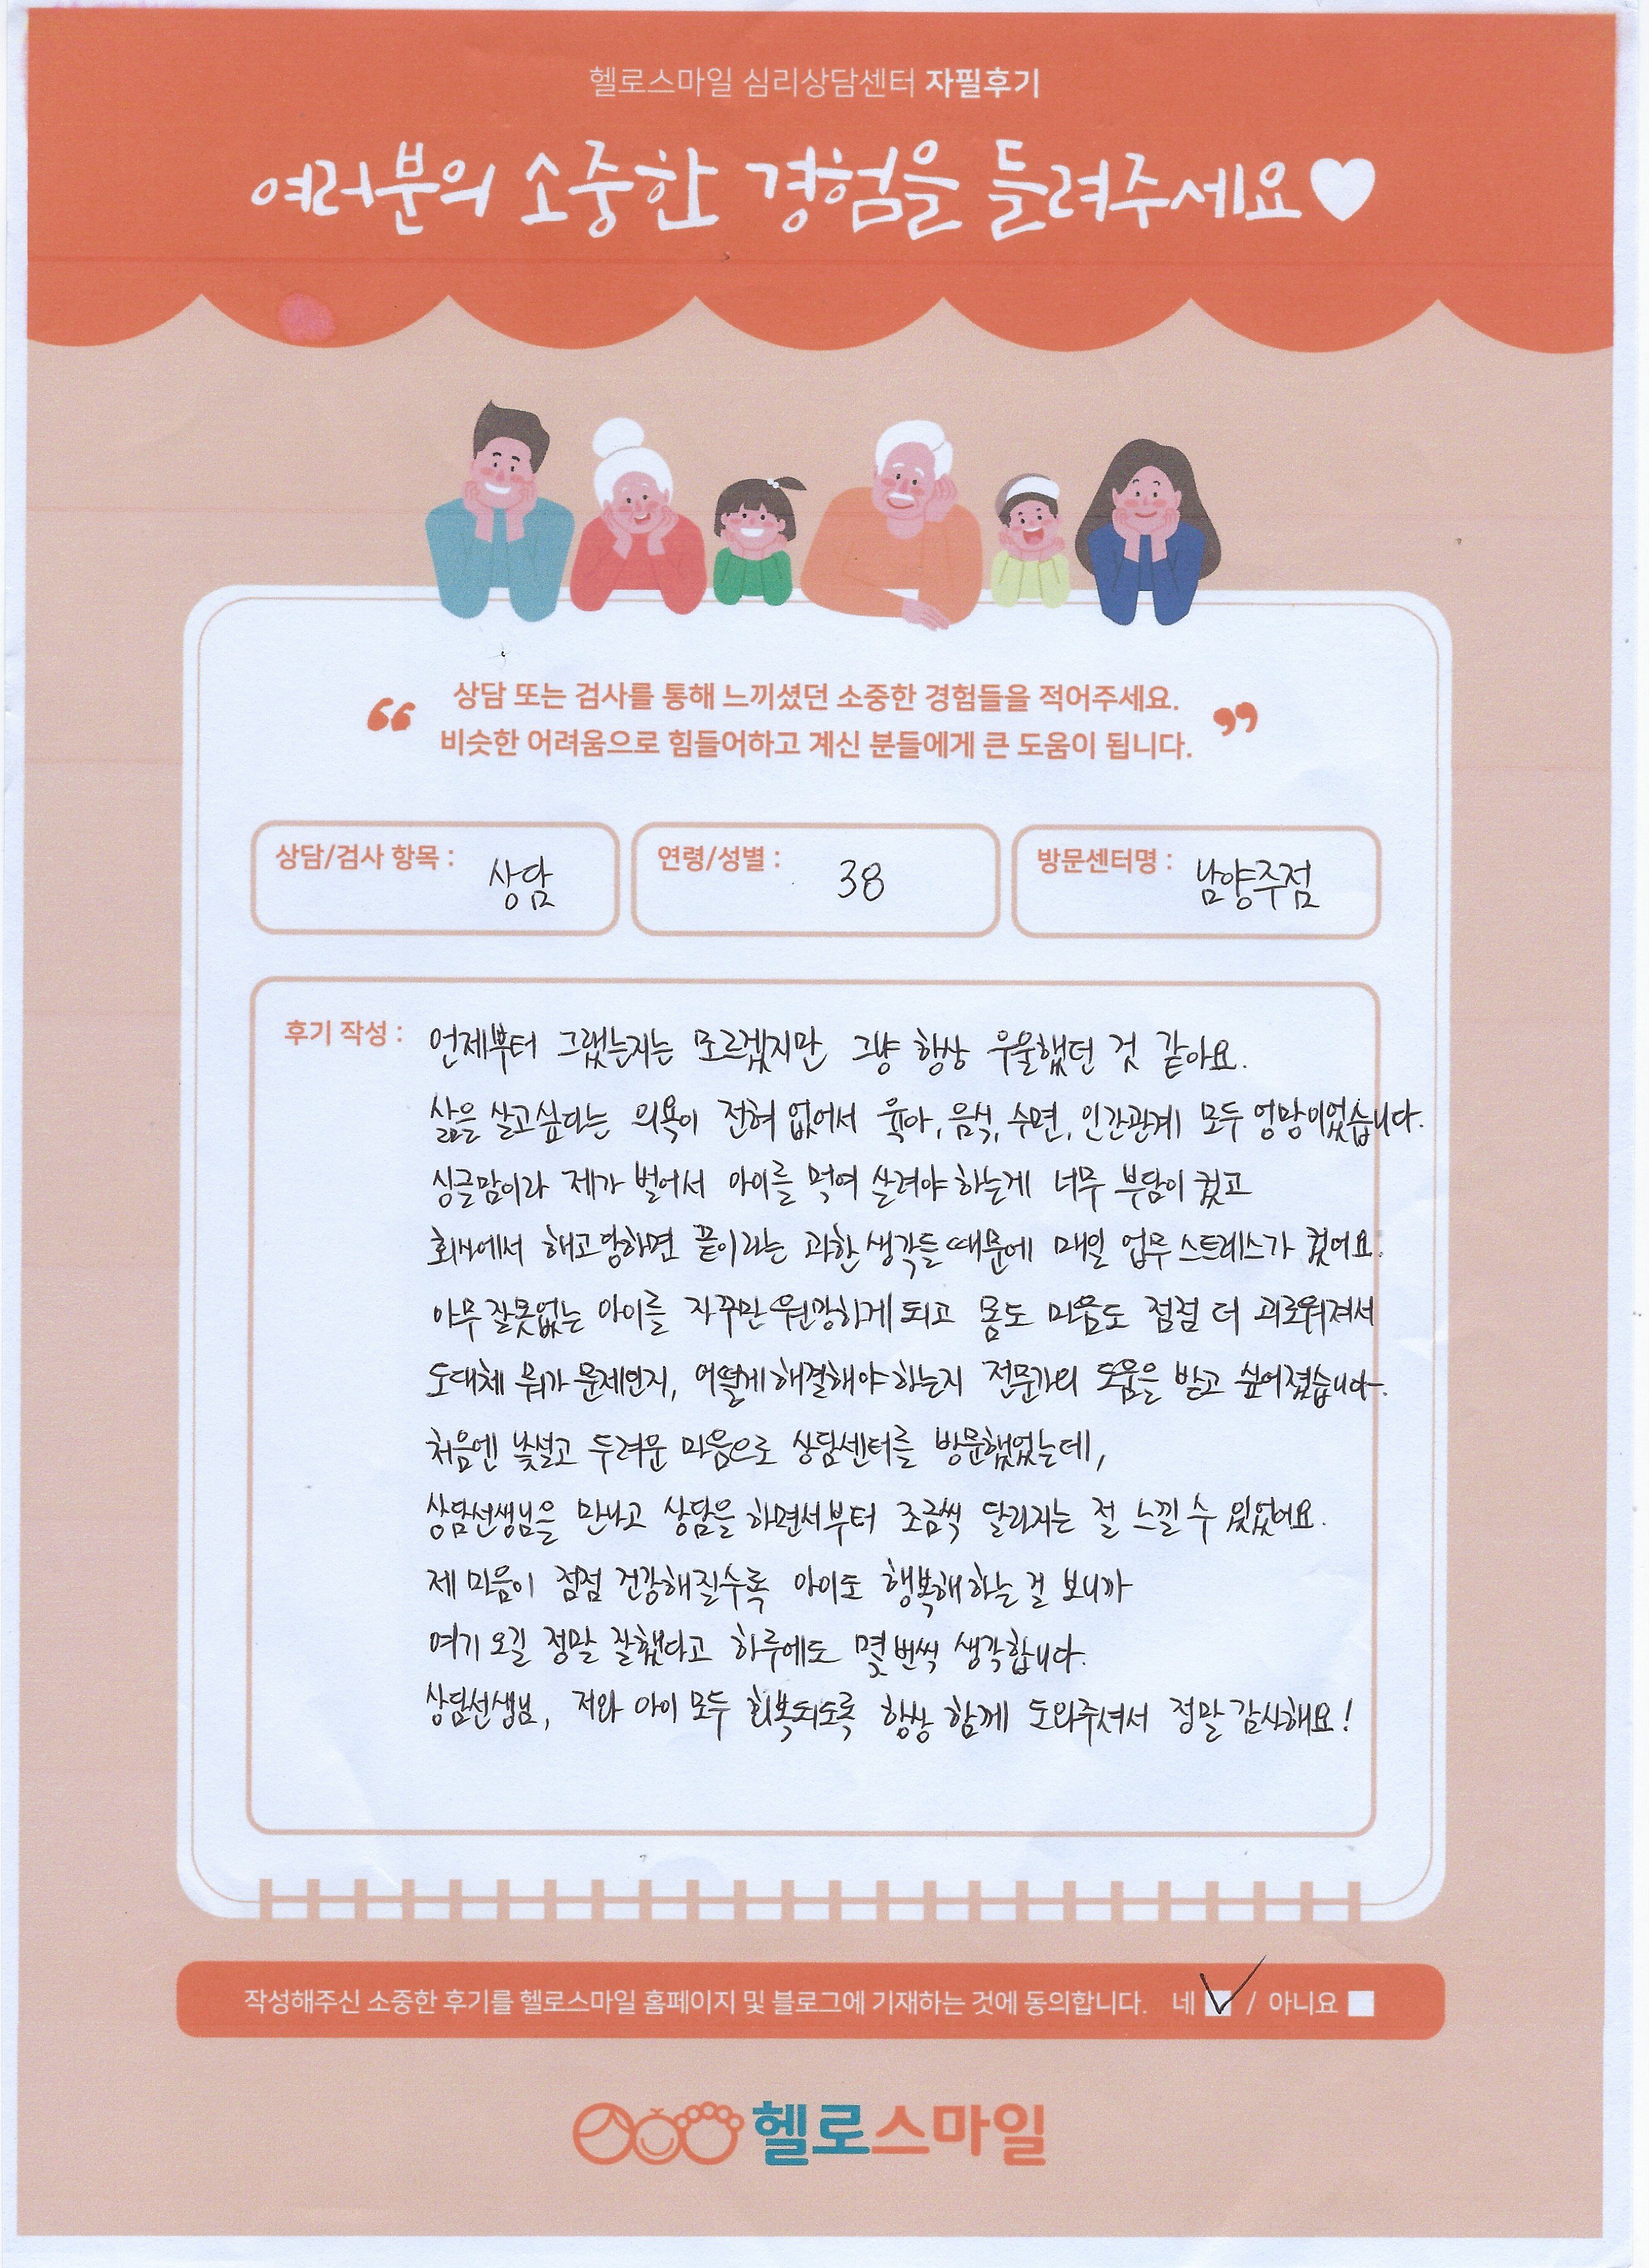 헬로스마일 심리상담센터 자필후기
여러분의 소중한 경험을 들려주세요♥
“ 상담 또는 검사를 통해 느끼셨던 소중한 경험들을 적어주세요.
비슷한 어려움으로 힘들어하고 계신 분들에게 큰 도움이 됩니다. ”
상담/검사 항목 : 상담
연령/성별 : 38
방문센터명 : 남양주점
후기 작성 : 언제부터 그랬는지는 모르겠지만 그냥 항상 우울했던 것 같아요.
삶을 살고싶다는 의욕이 전혀 없어서 육아, 음식, 수면, 인간관계 모두 엉망이었습니다.
싱글맘이라 제가 벌어서 아이를 먹여 살려야 하는게 너무 부담이 컸고
회사에서 해고당하면 끝이라는 과한 생각들 때문에 매일 업무 스트레스가 컸어요.
아무 잘못없는 아이를 자꾸만 원망하게 되고 몸도 마음도 점점 더 괴로워져서
도대체 뭐가 문제인지, 어떻게 해결해야 하는지 전문가의 도움을 받고 싶어졌습니다.
처음엔 낯설고 두려운 마음으로 상담센터를 방문했었는데,
상담선생님을 만나고 상담을 하면서부터 조금씩 달라지는 절 느낄 수 있었어요.
제 마음이 점점 건강해질수록 아이도 행복해하는 걸 보니까
여기 오길 정말 잘했다고 하루에도 몇 번씩 생각합니다.
상담선생님, 저와 아이 모두 회복되도록 항상 함께 도와주셔서 정말 감사해요!
작성해주신 소중한 후기를 헬로스마일 홈페이지 및 블로그에 기재하는 것에 동의합니다. 네 ☑ / 아니요 □
헬로스마일